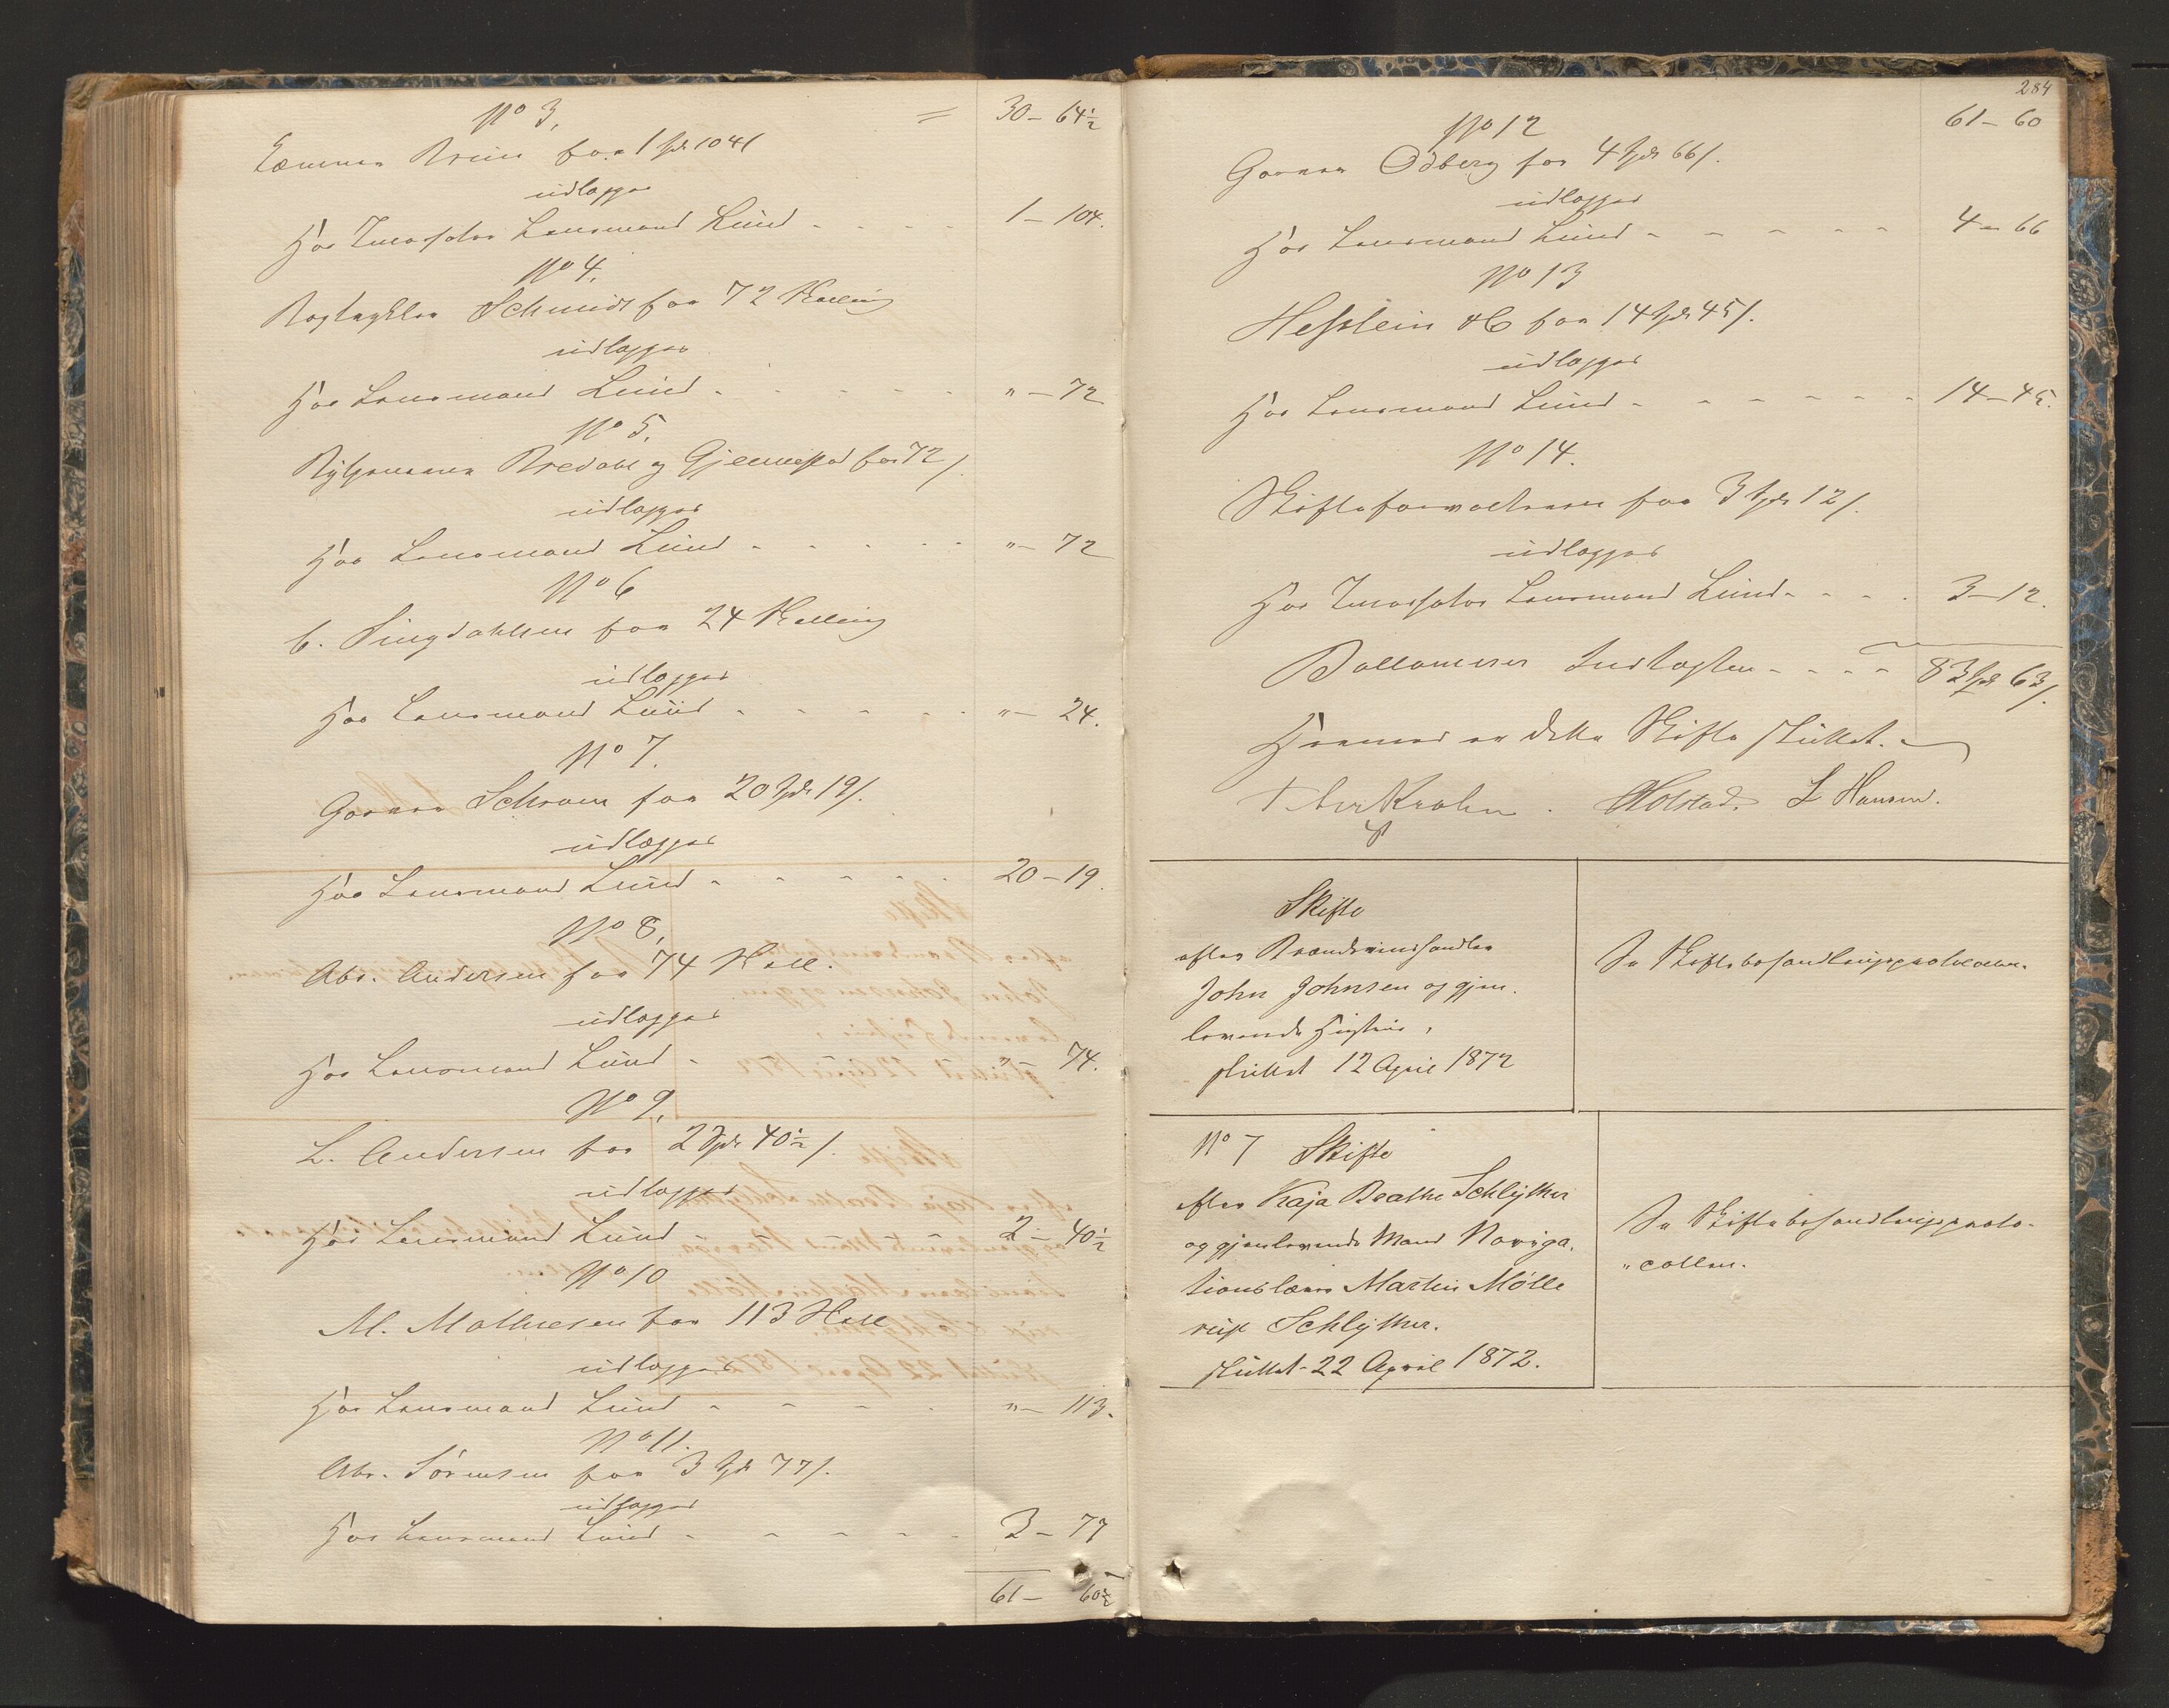 No 3, = 30 - 64½
Brun for 1 Spd 104 ſ
udlægges
Hos Incassator Lensmand Lund - - - - 1 - 104.
No 4.
Schmidt for 72 Skilling
udlægges
Hos Lensmand Lund - - - - - " - 72
No 5.
Bredahl og Gjemmestad for 72 ſ
udlægges
Hos Lensmand Lund - - - - - " - 72
No 6
C. Singdahlsen for 24 Skilling
udlægges
Hos Lensmand Lund - - - - - " - 24.
No 7.
Garver Schram for 20 Spd 19 ſ.
udlægges
Hos Lensmand Lund - - - - - 20 - 19.
No 8,
Abr. Andersen for 74 Skill.
udlægges
Hos Lensmand Lund - " - 74.
No 9,
L. Andersen for 2 Spd 40½ ſ.
udlægges
Hos Lensmand Lund - - - - 2 - 40½
No 10
M. Mathiesen for 113 Skill
udlægges
Hos Lensmand Lund - - - - " - 113.
No 11.
Abr. Sørensen for 3 Spd 77 ſ.
udlægges
Hos Lensmand Lund - - - - - 3 - 77
61 - 60½
284
61 - 60
No 12
Garver Odberg for 4 Spd 66 ſ.
udlægges
Hos Lensmand Lund - - - - - 4 - 66
No 13
Hesslein & C for 14 Spd 45 ſ.
udlægges
Hos Lensmand Lund - - - - - - 14 - 45.
No 14.
Skifteforvalteren for 3 Spd 12 ſ.
udlægges
Hos Incassator Lensmand Lund - - - - 3 - 12.
Ballancerer Indtægten - - - - 83 Spd 63 ſ.
Hermed er dette Skifte sluttet.
Krohn. Holstad. L Hansen.
Skifte
efter Brændevinshandler
John Johnsen og gjen-
levende Hustru,
sluttet 12 April 1872
Se Skiftebehandlingsprotocollen.
No 7 Skifte
efter Kaja Beathe Schlÿther
og gjenlevende Mand Naviga-
tionslærer Martin Mølle
rup Schlÿther.
sluttet 22 April 1872.
Se Skiftebehandlingsproto-
"collen.